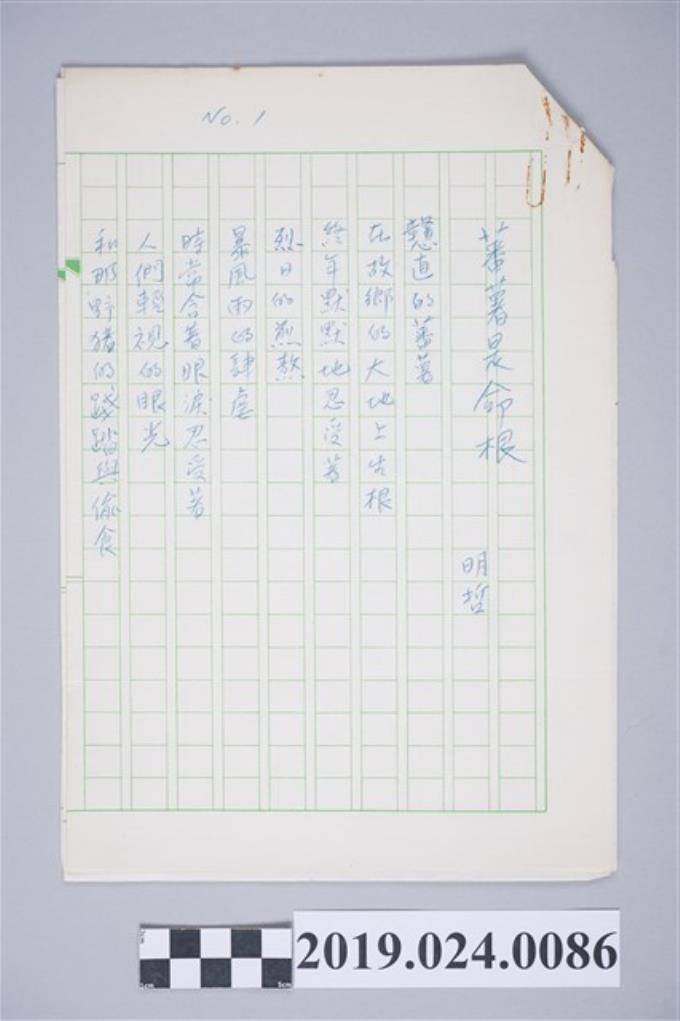 No. 1
蕃薯是命根
明哲
憨直的蕃薯
在故鄉的大地上生根
終年默默地忍受著
烈日的煎熬
暴風雨的肆虐
時常含著眼淚忍受著
人們輕視的眼光
和那野豬的踐踏與偷食
2019.024.0086